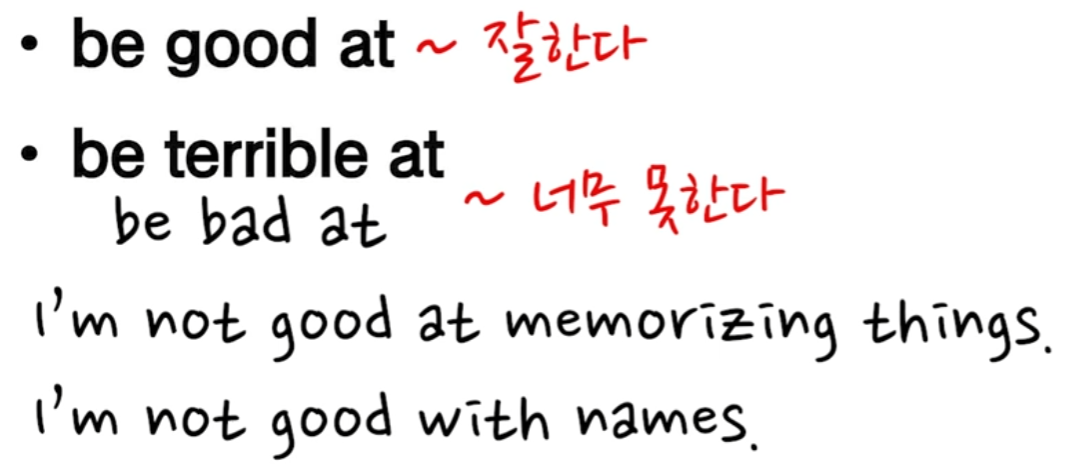 • be good at ~ 잘한다
• be terrible at
be bad at ~ 너무 못한다
I'm not good at memorizing things.
I'm not good with names.